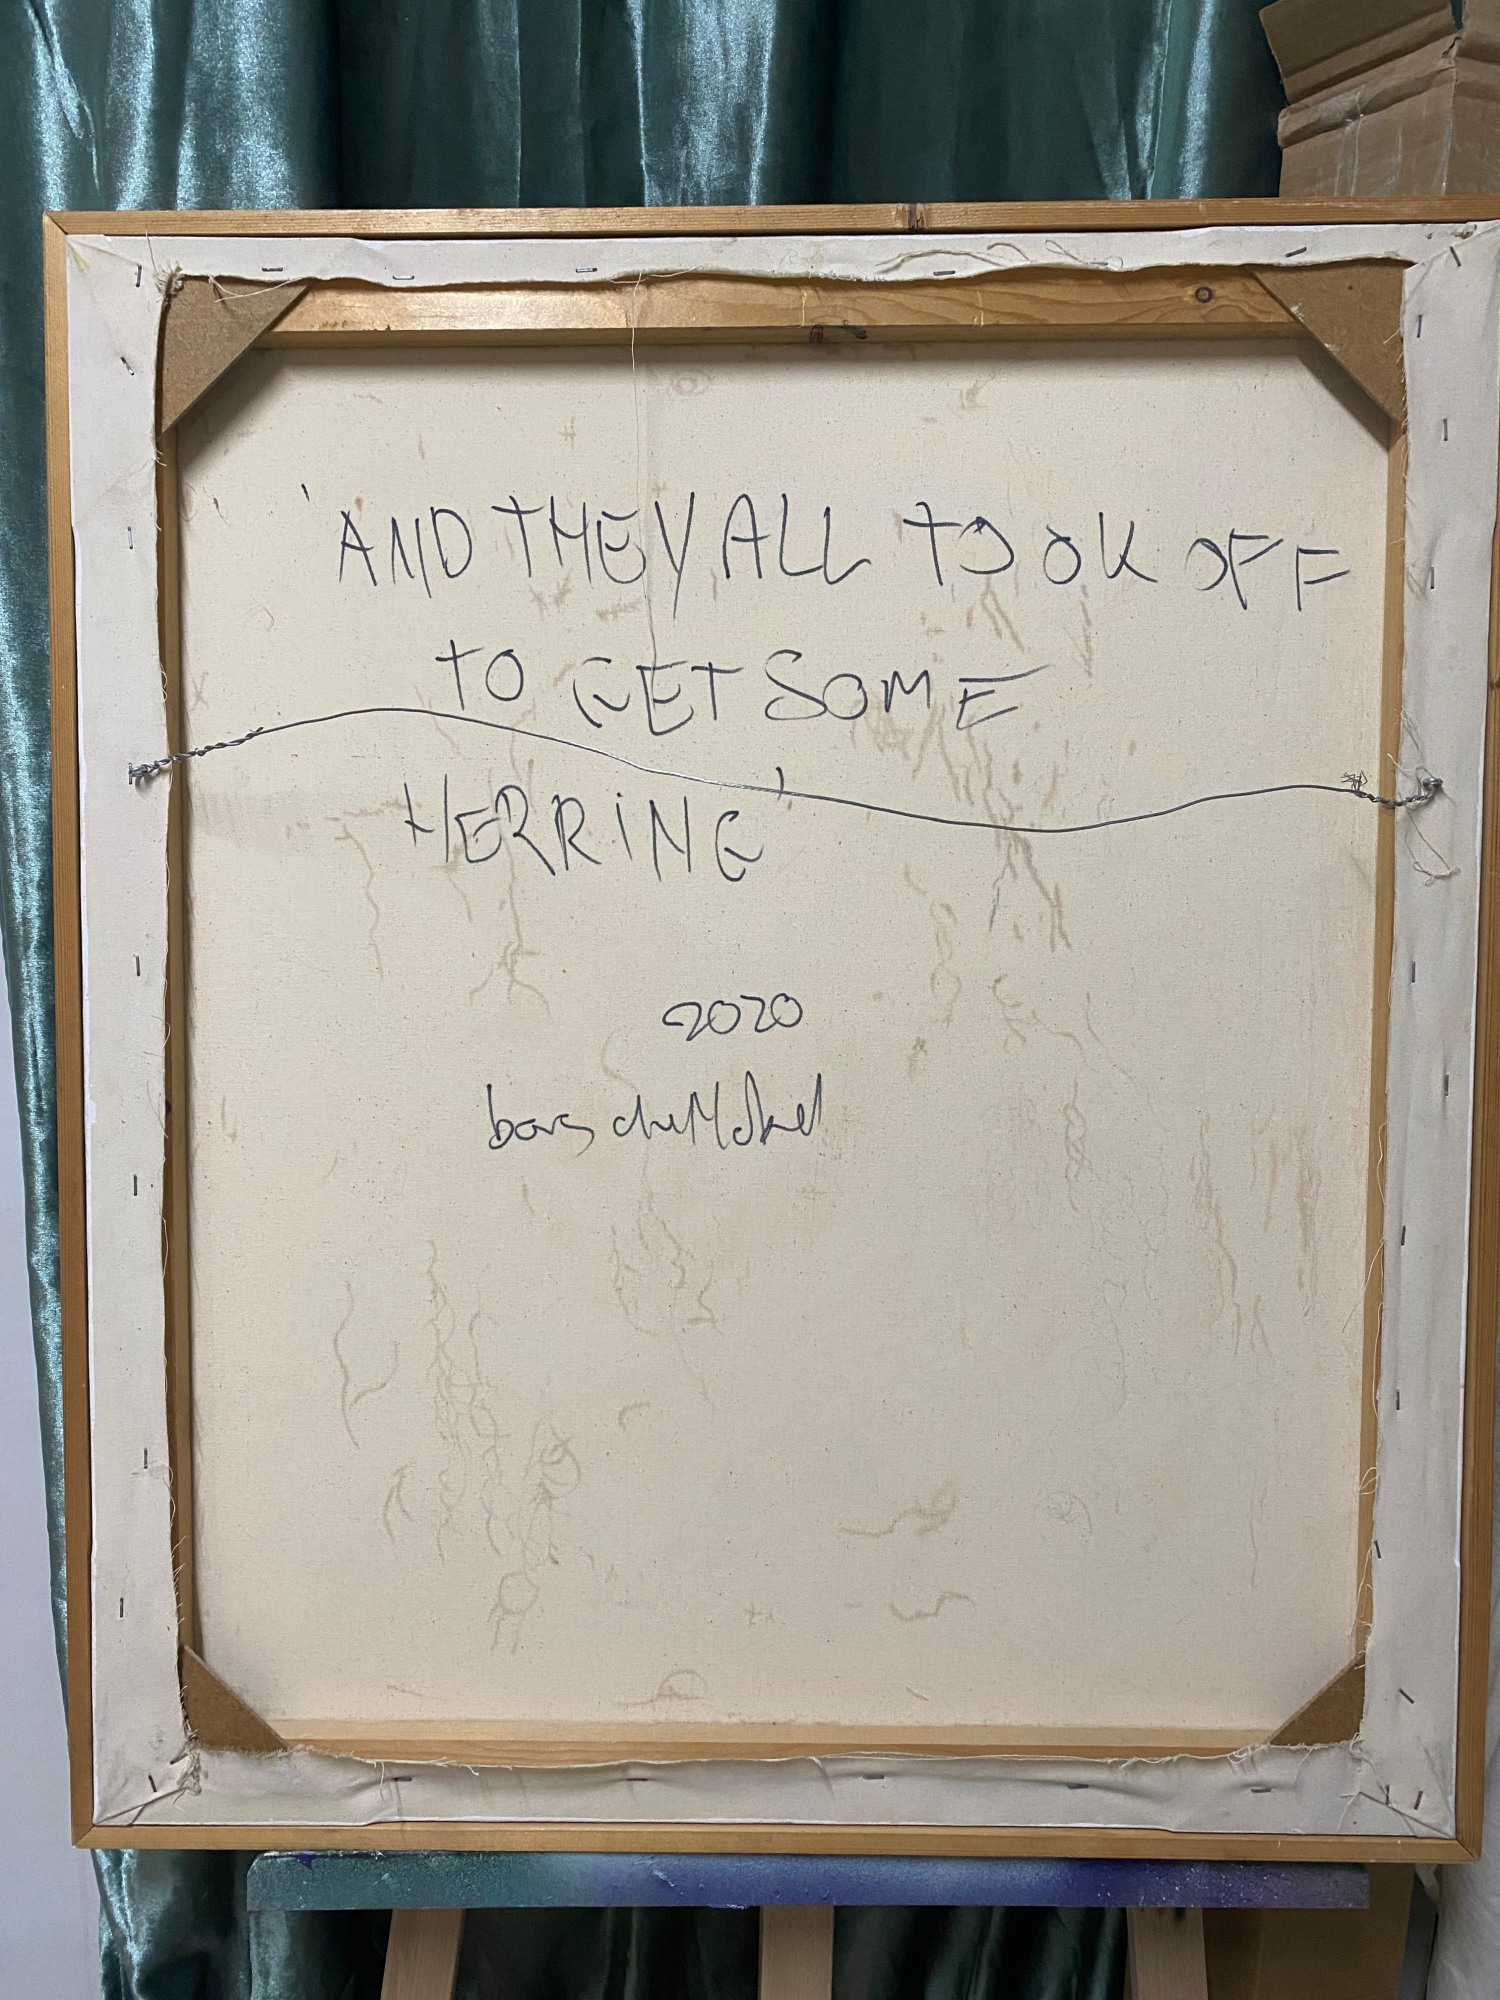 'AND THEY ALL TOOK OFF
TO GET SOME
HERRING'
2020